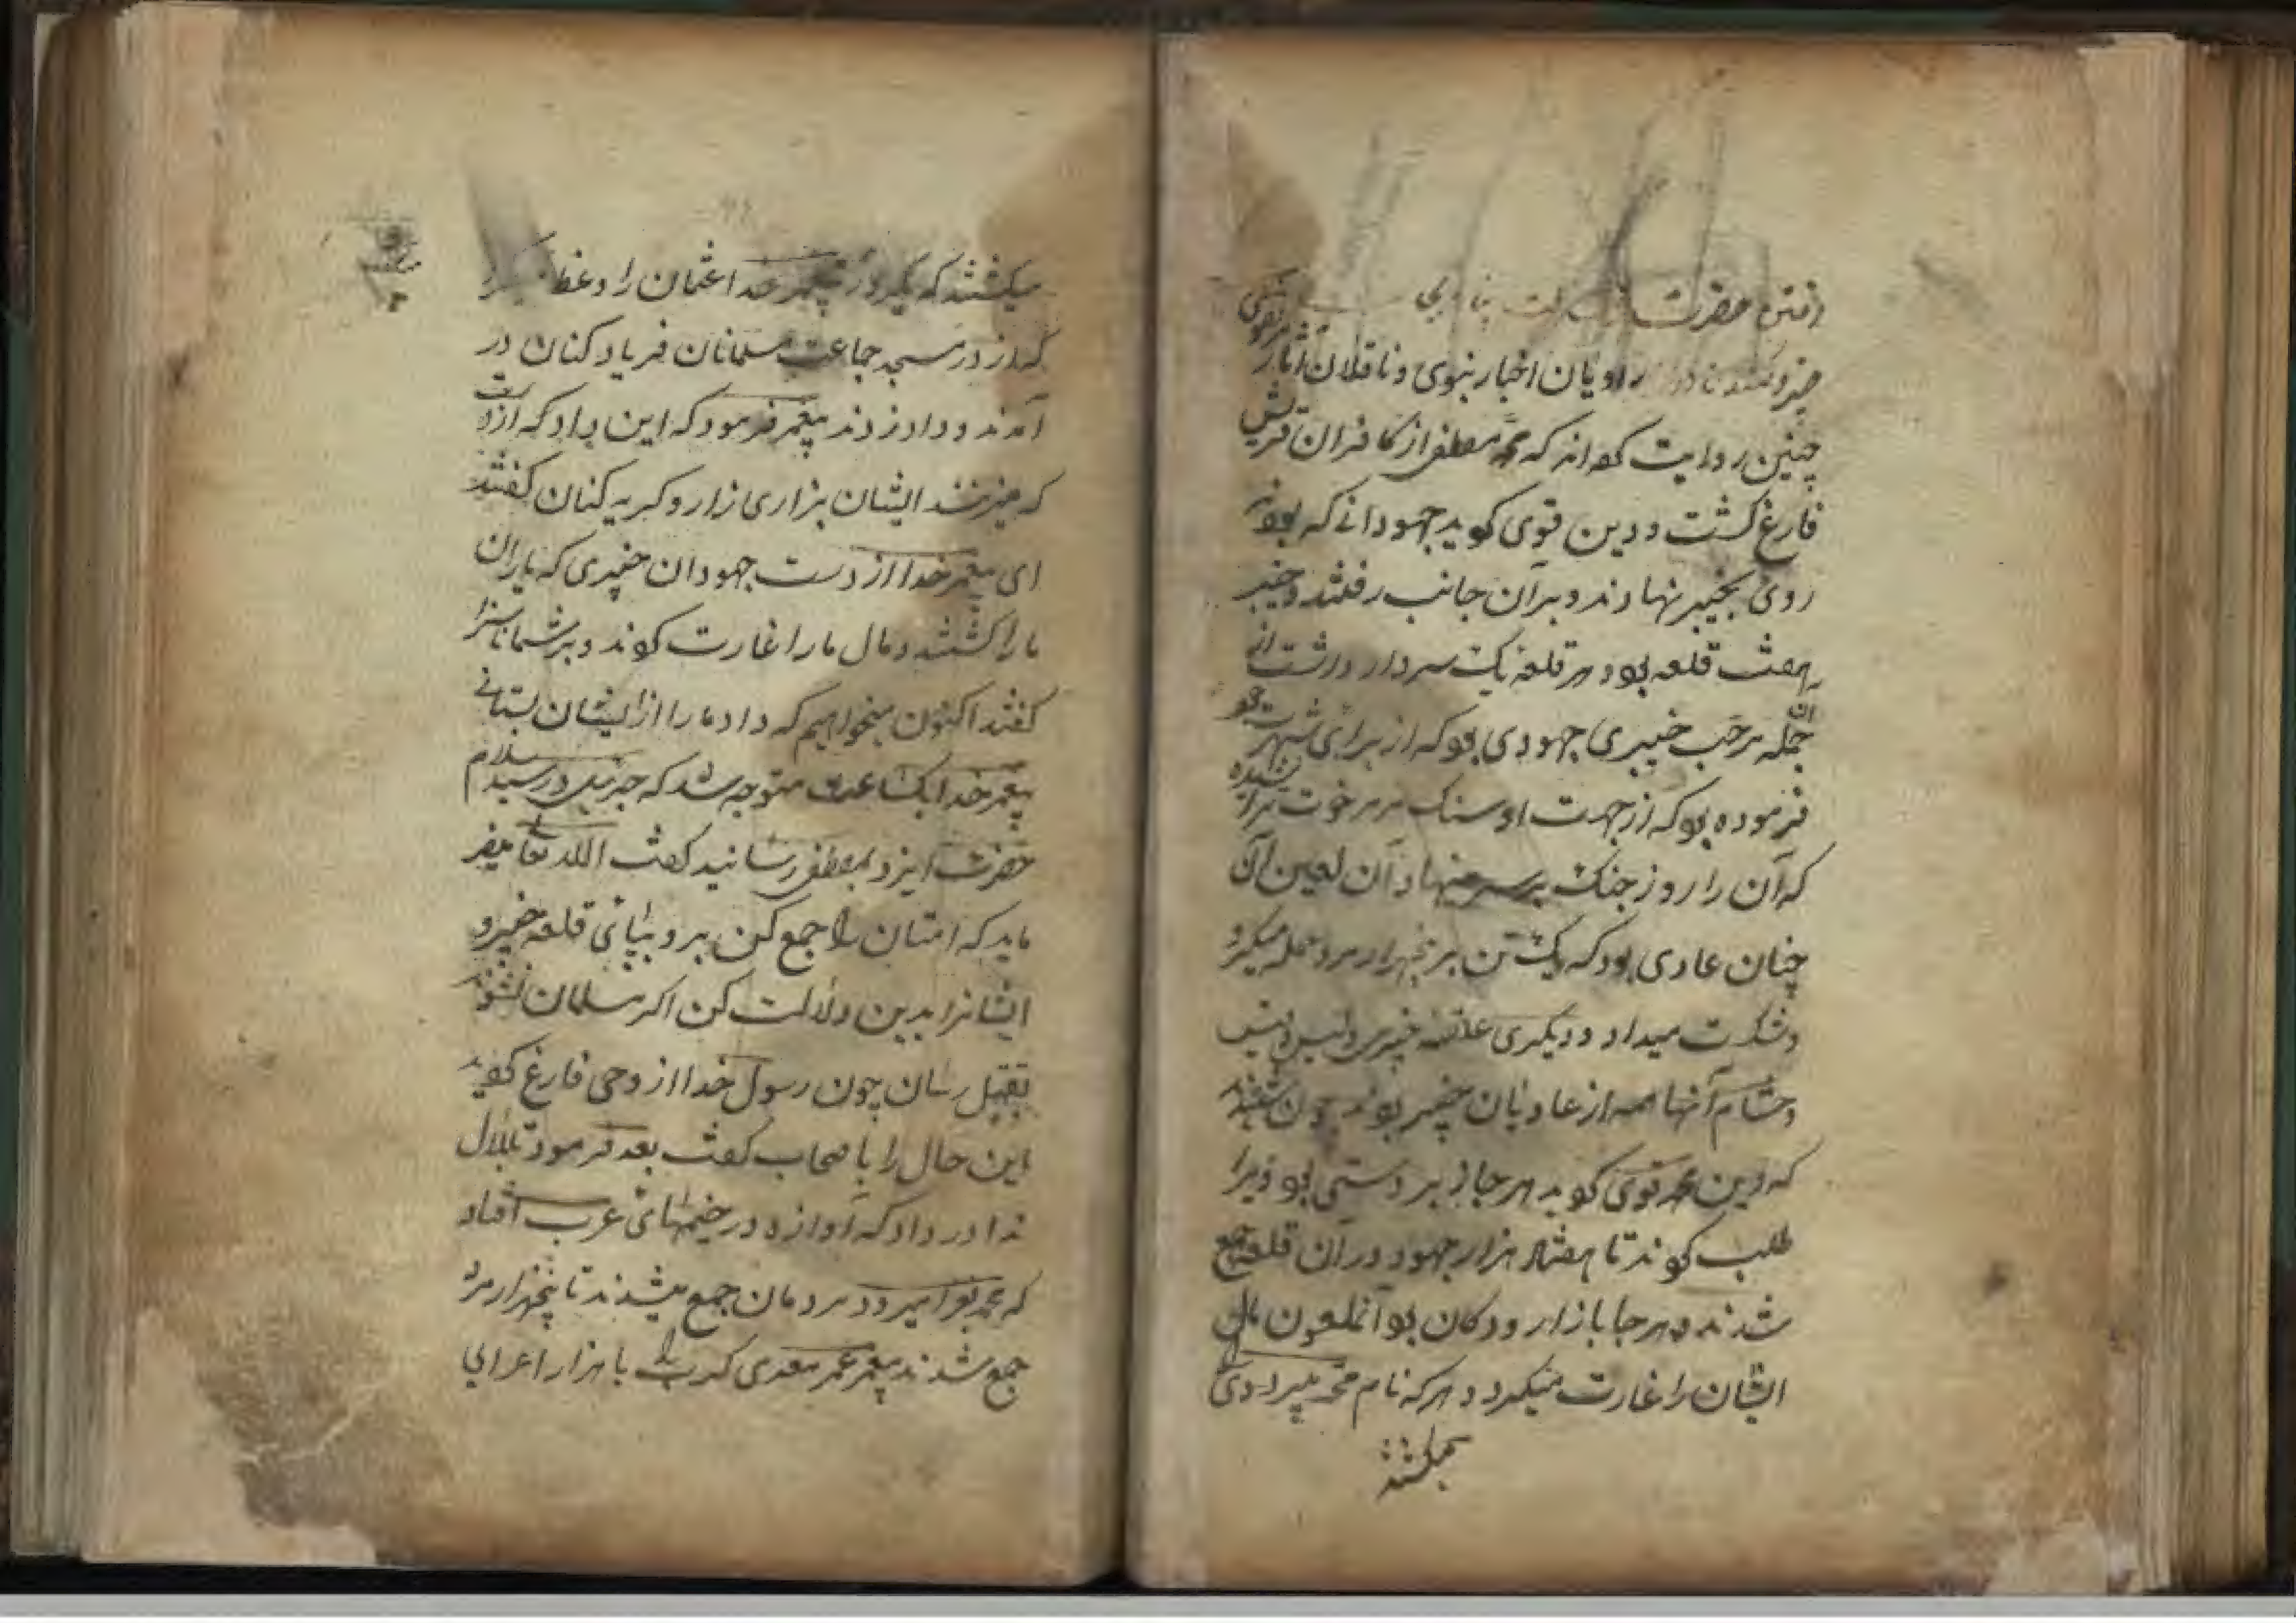 رفتن حضرت
راویان اخبار نبوی و ناقلان آثار مرتضوی
چنین روایت کرده‌اند که محمد مصطفی از کافران قریش
فارغ گشت و دین قوی کردید جهودانی که بودند
روی بخیبر نهادند و بر آن جانب رفتند و خیبر
هفت قلعه بود و هر قلعه یک سردار داشت از
آن جمله مرحب خیبری جهودی بود که از برای شهرت خود
فرموده بود که از جهت او سنک مرمر خوت تراشیده
که آن را روز جنک بر سر مینهاد آن لعین آن
چنان عادی بود که یک تن بر پنجهزار مرد حمله میکرد
و شکست میداد و دیگری خیبری
و حشام آنها همه از عادیان خیبر بودند چون شنیدند
که دین محمد قوی کردید هر جا زبر دستی بود ویرا
طلب کردند تا هفتاد هزار جهود در آن قلعه جمع
شدند و هر جا بازار و دکان بود آن ملعون مال
ایشان را غارت میکرد و هر که نام محمد میبرد وی
میکشتند
میکشتند که یکروز پیغمبر خدا عثمان را وعظ میکرد
که از در مسجد جماعت مسلمانان فریاد کنان در
آمدند و داد زدند پیغمبر فرمود که این داد که از دست
که میزنند ایشان بزاری زار و کریه کنان کفتند
ای پیغمبر خدا از دست جهودان خیبری که یاران
ما را کشتند و مال ما را غارت کردند و بر شما ناسزا
کفتند اکنون میخواهیم که داد ما را از ایشان بستانی
پیغمبر خدا یکساعت متوجه شد که جبرئیل در رسید سلام
حضرت ایزد بمصطفی رسانید کفت الله تعالی میفر
ماید که امتان را جمع کن برو بپای قلعه خیبر و
ایشانرا بدین دلالت کن اکر مسلمان نشوند
بقتل رسان چون رسول خدا از وحی فارغ کردید
این حال را با صحاب کفت بعد فرمود تا بلال
ندا در داد که آوازه در خیمهای عرب افتاد
که محمد بغزا میرود مردمان جمع میشدند تا پنجهزار مرد
جمع شدند پیغمبر عمر معدی کرب را با هزار اعرابی